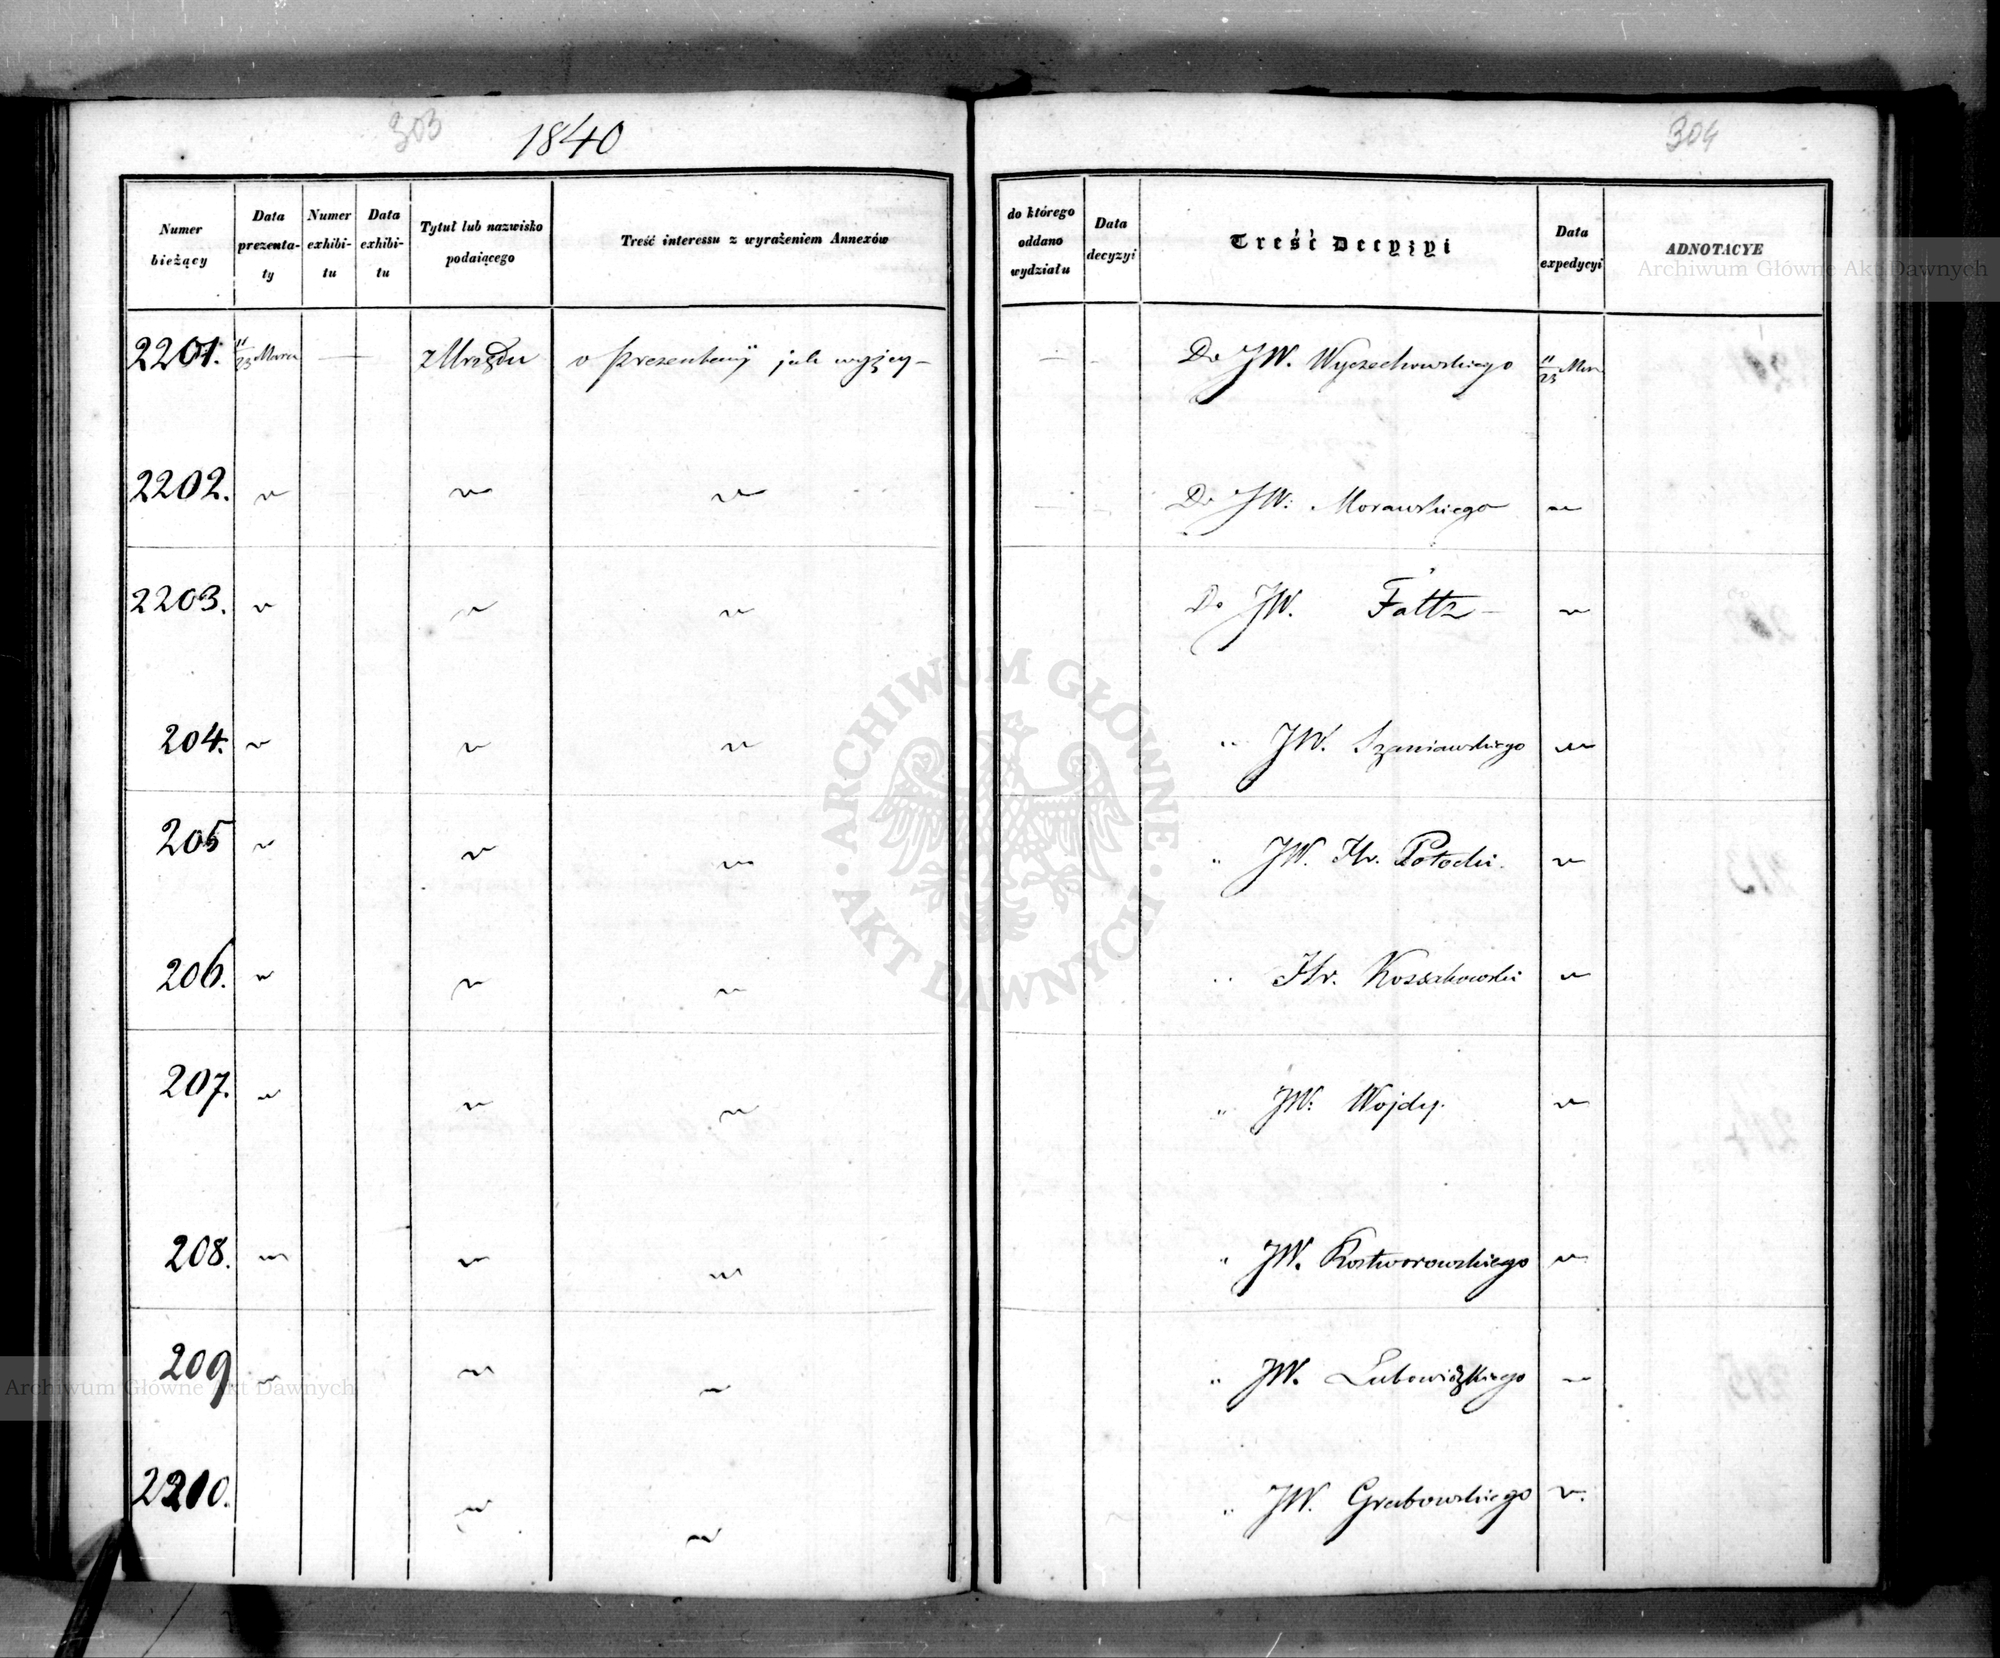 303
1840
304
Numer bieżący
Data prezenta-ty
Numer exhibi-tu
Data exhibi-tu
Tytuł lub nazwisko podaiącego
Treść interessu z wyrażeniem Annexów
do którego oddano wydziału
Data decyzyi
Treść Decyzyi
Data expedycyi
ADNOTACYE
2201. 11/23 Marca — z Urzędu o Prezentacyi jak wyżey — Do JW. Wyczechowskiego 11/23 Mar
2202. " " " Do JW. Morawskiego "
2203. " " " Do JW. Faltz — "
204. " " " " JW. Szaniawskiego "
205 " " " " JW. Hr. Potocki. "
206. " " " " Hr. Kossakowski "
207. " " " " JW. Wojdy. "
208. " " " " JW. Kostworowskiego "
209 " " " " JW. Lubowidzkiego "
2210. " " " JW. Grabowskiego "
Archiwum Główne Akt Dawnych
Archiwum Główne Akt Dawnych
ARCHIWUM GŁÓWNE AKT DAWNYCH